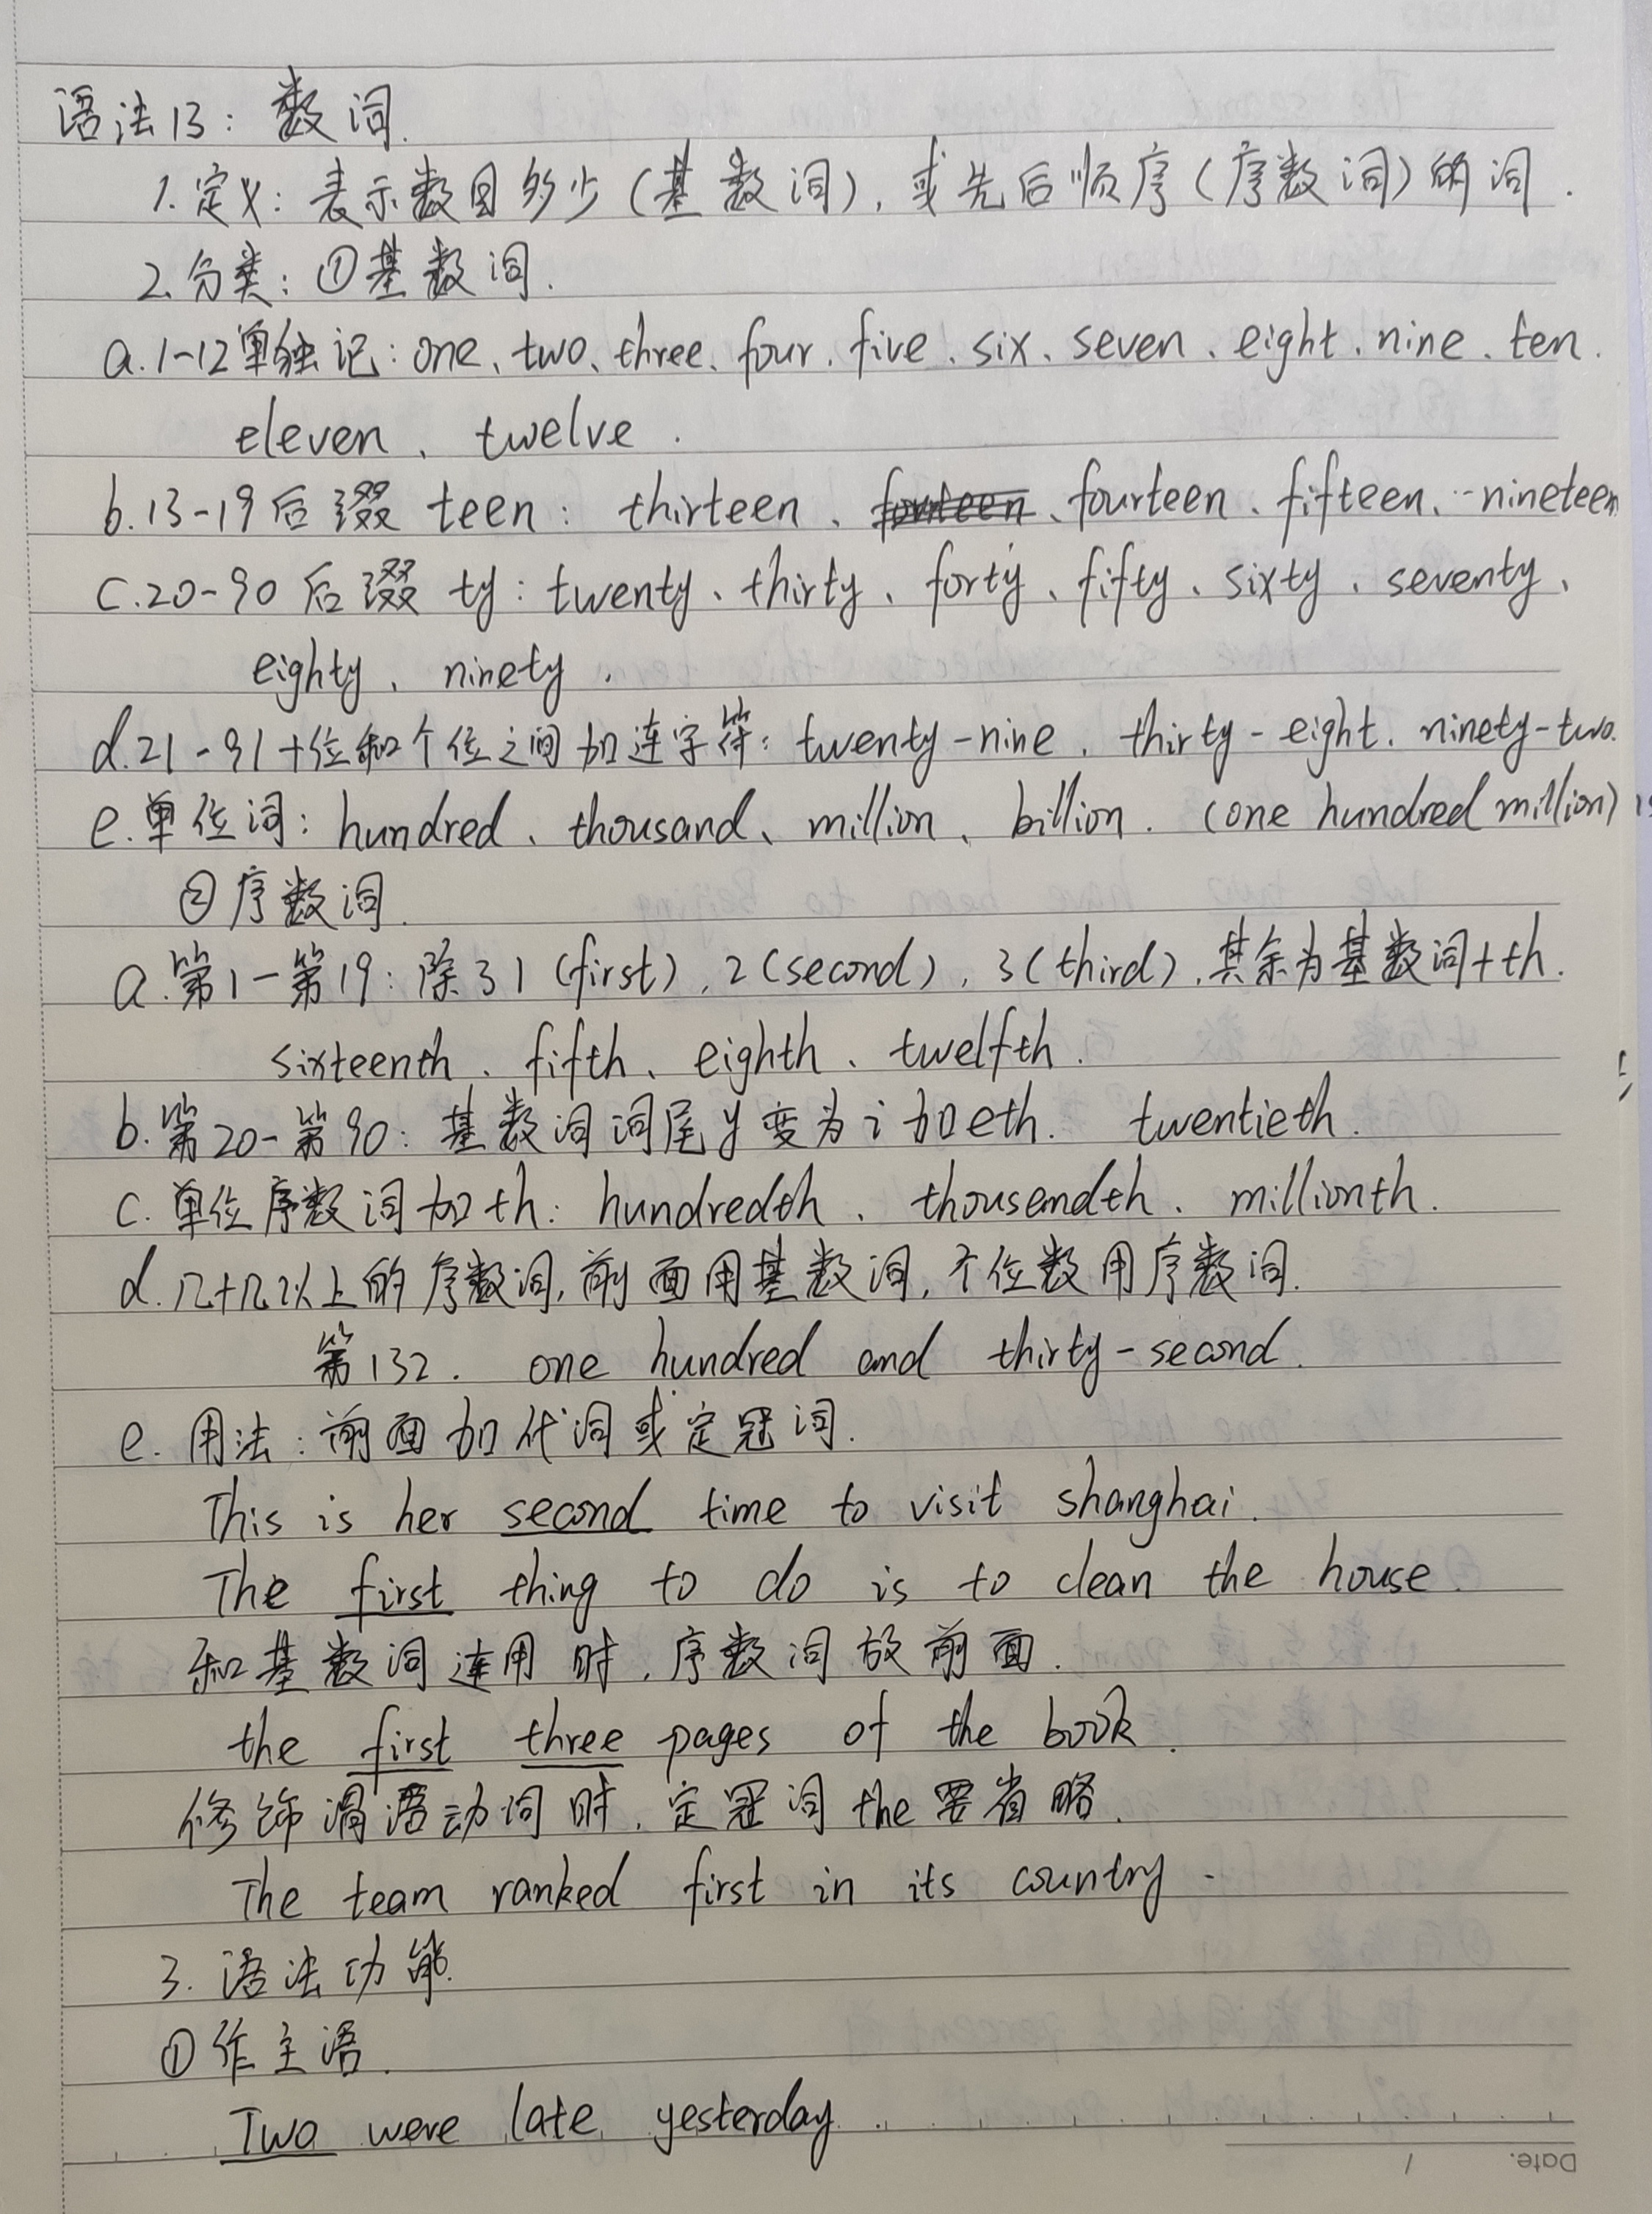 语法13：数词.
1.定义：表示数目多少（基数词），或先后顺序（序数词）的词.
2.分类：①基数词.
a.1-12单独记：one、two、three、four、five、six、seven、eight、nine、ten.
eleven、twelve.
b.13-19后缀 teen：thirteen、fourteen、fifteen、…nineteen
c.20-90后缀 ty：twenty、thirty、forty、fifty、sixty、seventy、
eighty、ninety.
d.21-91十位和个位之间加连字符：twenty-nine、thirty-eight、ninety-two.
e.单位词：hundred、thousand、million、billion.（one hundred million）
②序数词.
a.第1-第19：除31（first），2（second），3（third），其余为基数词+th.
sixteenth、fifth、eighth、twelfth.
b.第20-第90：基数词词尾y变为i加eth. twentieth.
c.单位序数词加th：hundredth、thousandth、millionth.
d.几十几以上的序数词，前面用基数词，个位数用序数词.
第132. one hundred and thirty-second.
e.用法：前面加代词或定冠词.
This is her second time to visit shanghai.
The first thing to do is to clean the house.
和基数词连用时，序数词放前面.
the first three pages of the book.
修饰谓语动词时，定冠词the要省略.
The team ranked first in its country.
3.语法功能.
①作主语.
Two were late yesterday.
Date.